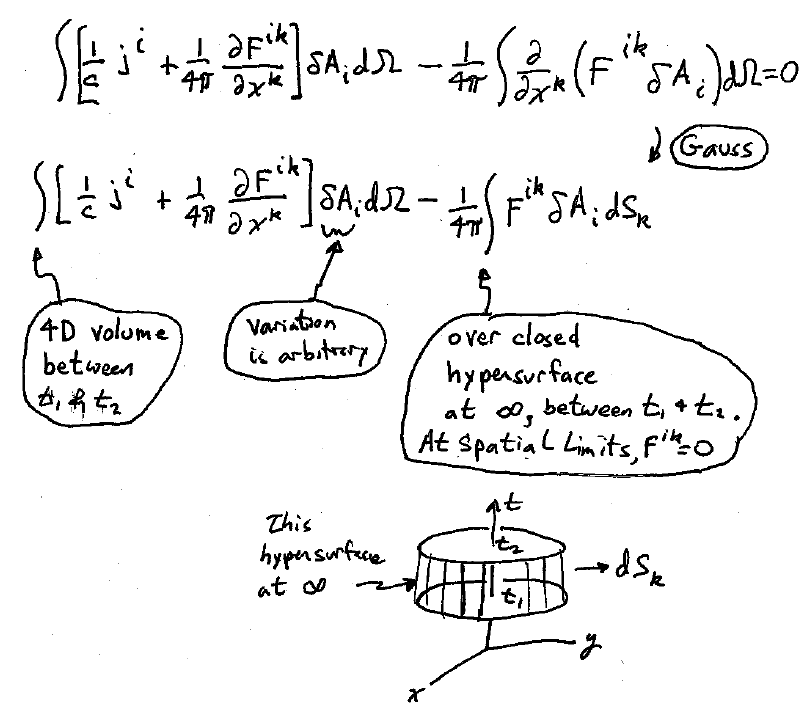 ∫[1/c j^i + 1/4π ∂F^ik/∂x^k] δA_i dΩ − 1/4π ∫ ∂/∂x^k (F^ik δA_i) dΩ = 0
Gauss
∫[1/c j^i + 1/4π ∂F^ik/∂x^k] δA_i dΩ − 1/4π ∫ F^ik δA_i dS_k
4D volume
between
t_1 & t_2
variation
is arbitrary
over closed
hypersurface
at ∞, between t_1 & t_2.
At Spatial Limits, F^ik=0
This
hypersurface
at ∞
t
t_2
t_1
dS_k
y
x